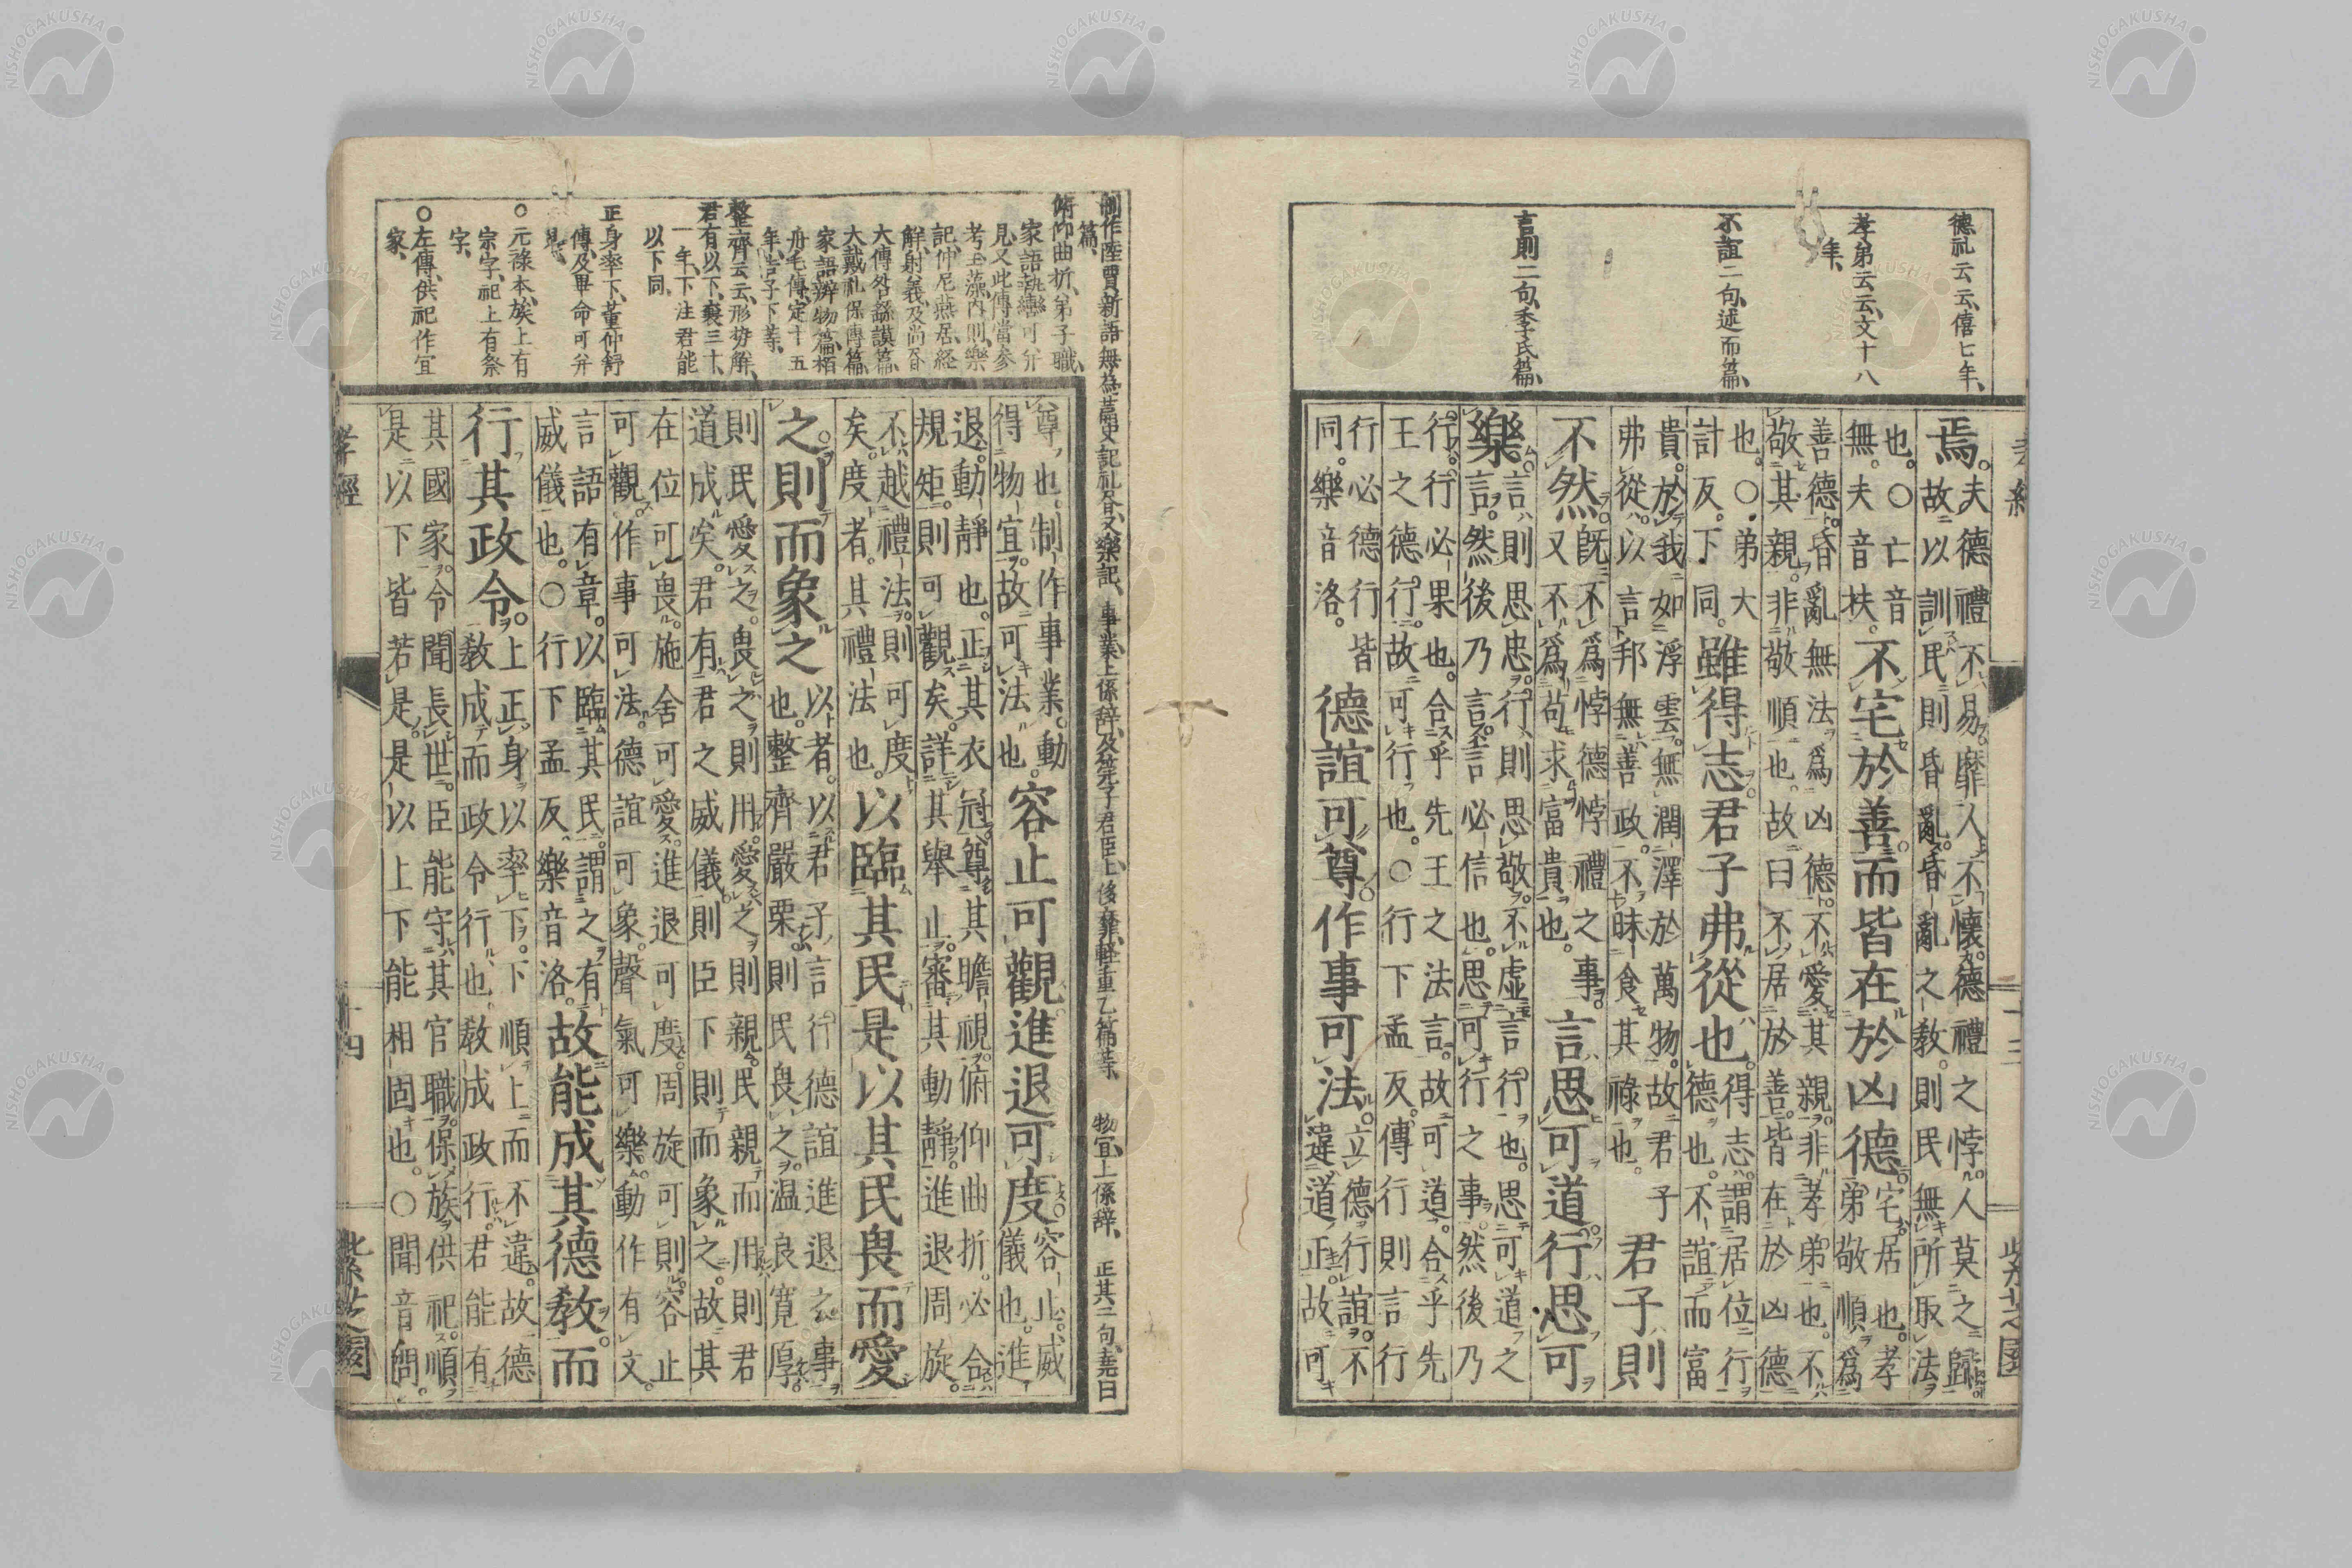 德礼云云、僖七年、
孝弟云云、文十八
年、
不誼二句、述而篇、
言則二句、季氏篇、
焉。
夫德禮不易靡人不懷。德禮之悖。人莫之歸。
故以訓民則昏亂。昏亂之教。則民無所取法
也。○亡音
無。夫音扶。
不宅於善。而皆在於凶德。
宅居也。孝
弟敬順爲
善德。昏亂無法爲凶德。不愛其親。非孝弟也。不
敬其親。非敬順也。故曰不居於善。皆在於凶德
也。○弟大
計反。下同。
雖得志。君子弗從也。
得志。謂居位行
德也。不誼而富
貴。於我如浮雲。無潤澤於萬物。故君子
弗從。以言邦無善政。不昧食其祿也。
君子則
不然。
既不爲悖德悖禮之事。
又不爲苟求富貴也。
言思可道。行思可
樂。
言則思忠。行則思敬。不虛言行也。思可道之
言。然後乃言。言必信也。思可行之事。然後乃
行。行必果也。合乎先王之法言。故可道。合乎先
王之德行。故可行也。○行下孟反。傳行則言行
行必德行行皆
同。樂音洛。
德誼可尊。作事可法。
立德行誼。不
違道正。故可
制作陸賈新語無為
篇、
事業上係辞、
物宜上係辞、
正其二句、堯曰
俯仰曲折、弟子職、
家語執轡可并
見、又此傳當參
考玉藻、内則、樂
記、仲尼燕居、経
解、射義、及尚書
大傳咎繇謨篇、
大戴礼保傳篇、
家語辨物篇、栢
舟毛傳、定十五
年、
整齊云云、形勢解、
君有以下、襄三十
一年、下注君能
以下同、
正身率下、董仲舒
傳、及畢命可并
見、
○元祿本、族上有
宗字、祀上有祭
字、
○左傳、供祀作宜
家、
尊也。制作事業。動
得物宜。故可法也。
容止可觀。進退可度。
容止。威
儀也。進
退。動靜也。正其衣冠。尊其瞻視。俯仰曲折。必合
規矩。則可觀矣。詳其舉止。審其動靜。進退周旋。
不越禮法。則可度
矣。度者。其禮法也。
以臨其民。是以其民畏而愛
之。則而象之。
以者。以君子言行德誼進退之事
也。整齊嚴栗。則民畏之。温良寛厚。
則民愛之。畏之則用。愛之則親。民親而用。則君
道成矣。君有君之威儀。則臣下則而象之。故其
在位可畏。施舍可愛。進退可度。周旋可則。容止
可觀。作事可法。德誼可象。聲氣可樂。動作有文。
言語有章。以臨其民。謂之有
威儀也。○行下孟反。樂音洛。
故能成其德教。而
行其政令。
上正身以率下。下順上而不違。故德
教成而政令行也。教成政行。君能有
其國家。令聞長世。臣能守其官職。保族供祀。順
是以下皆若是。是以上下能相固也。○聞音問。
孝經
十四
紫芝園